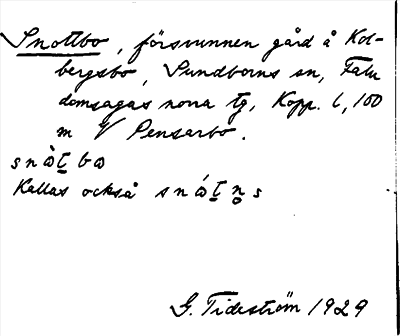 Snottbo, försvunnen gård å Kol-
bergsbo, Sundborns sn, Falu
domsagas norra tg, Kopp. l, 100
m V Pensarbo.
snὰt̠ bɷ
Kallas också snάt̠n̥s
G. Tideström 1929